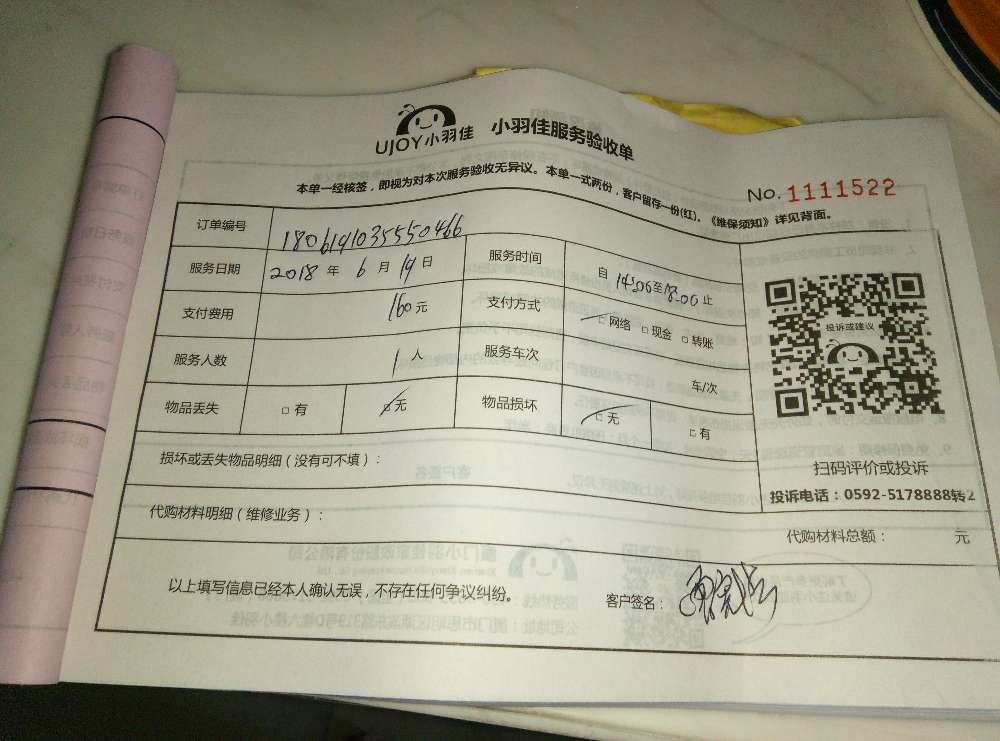 UJOY小羽佳 小羽佳服务验收单
本单一经核签，即视为对本次服务验收无异议。本单一式两份，客户留存一份(红)。《维保须知》详见背面。
No. 1111522
订单编号 1806191035550466
服务日期 2018 年 6 月 19 日 服务时间 自 14:00 至 18:00 止
支付费用 160 元 支付方式 □ 网络 □ 现金 □ 转账
服务人数 1 人 服务车次 车/次
物品丢失 □ 有 □ 无 物品损坏 □ 无 □ 有
投诉或建议
扫码评价或投诉
投诉电话：0592-5178888转2
损坏或丢失物品明细（没有可不填）：
代购材料明细（维修业务）： 代购材料总额： 元
以上填写信息已经本人确认无误，不存在任何争议纠纷。 客户签名：